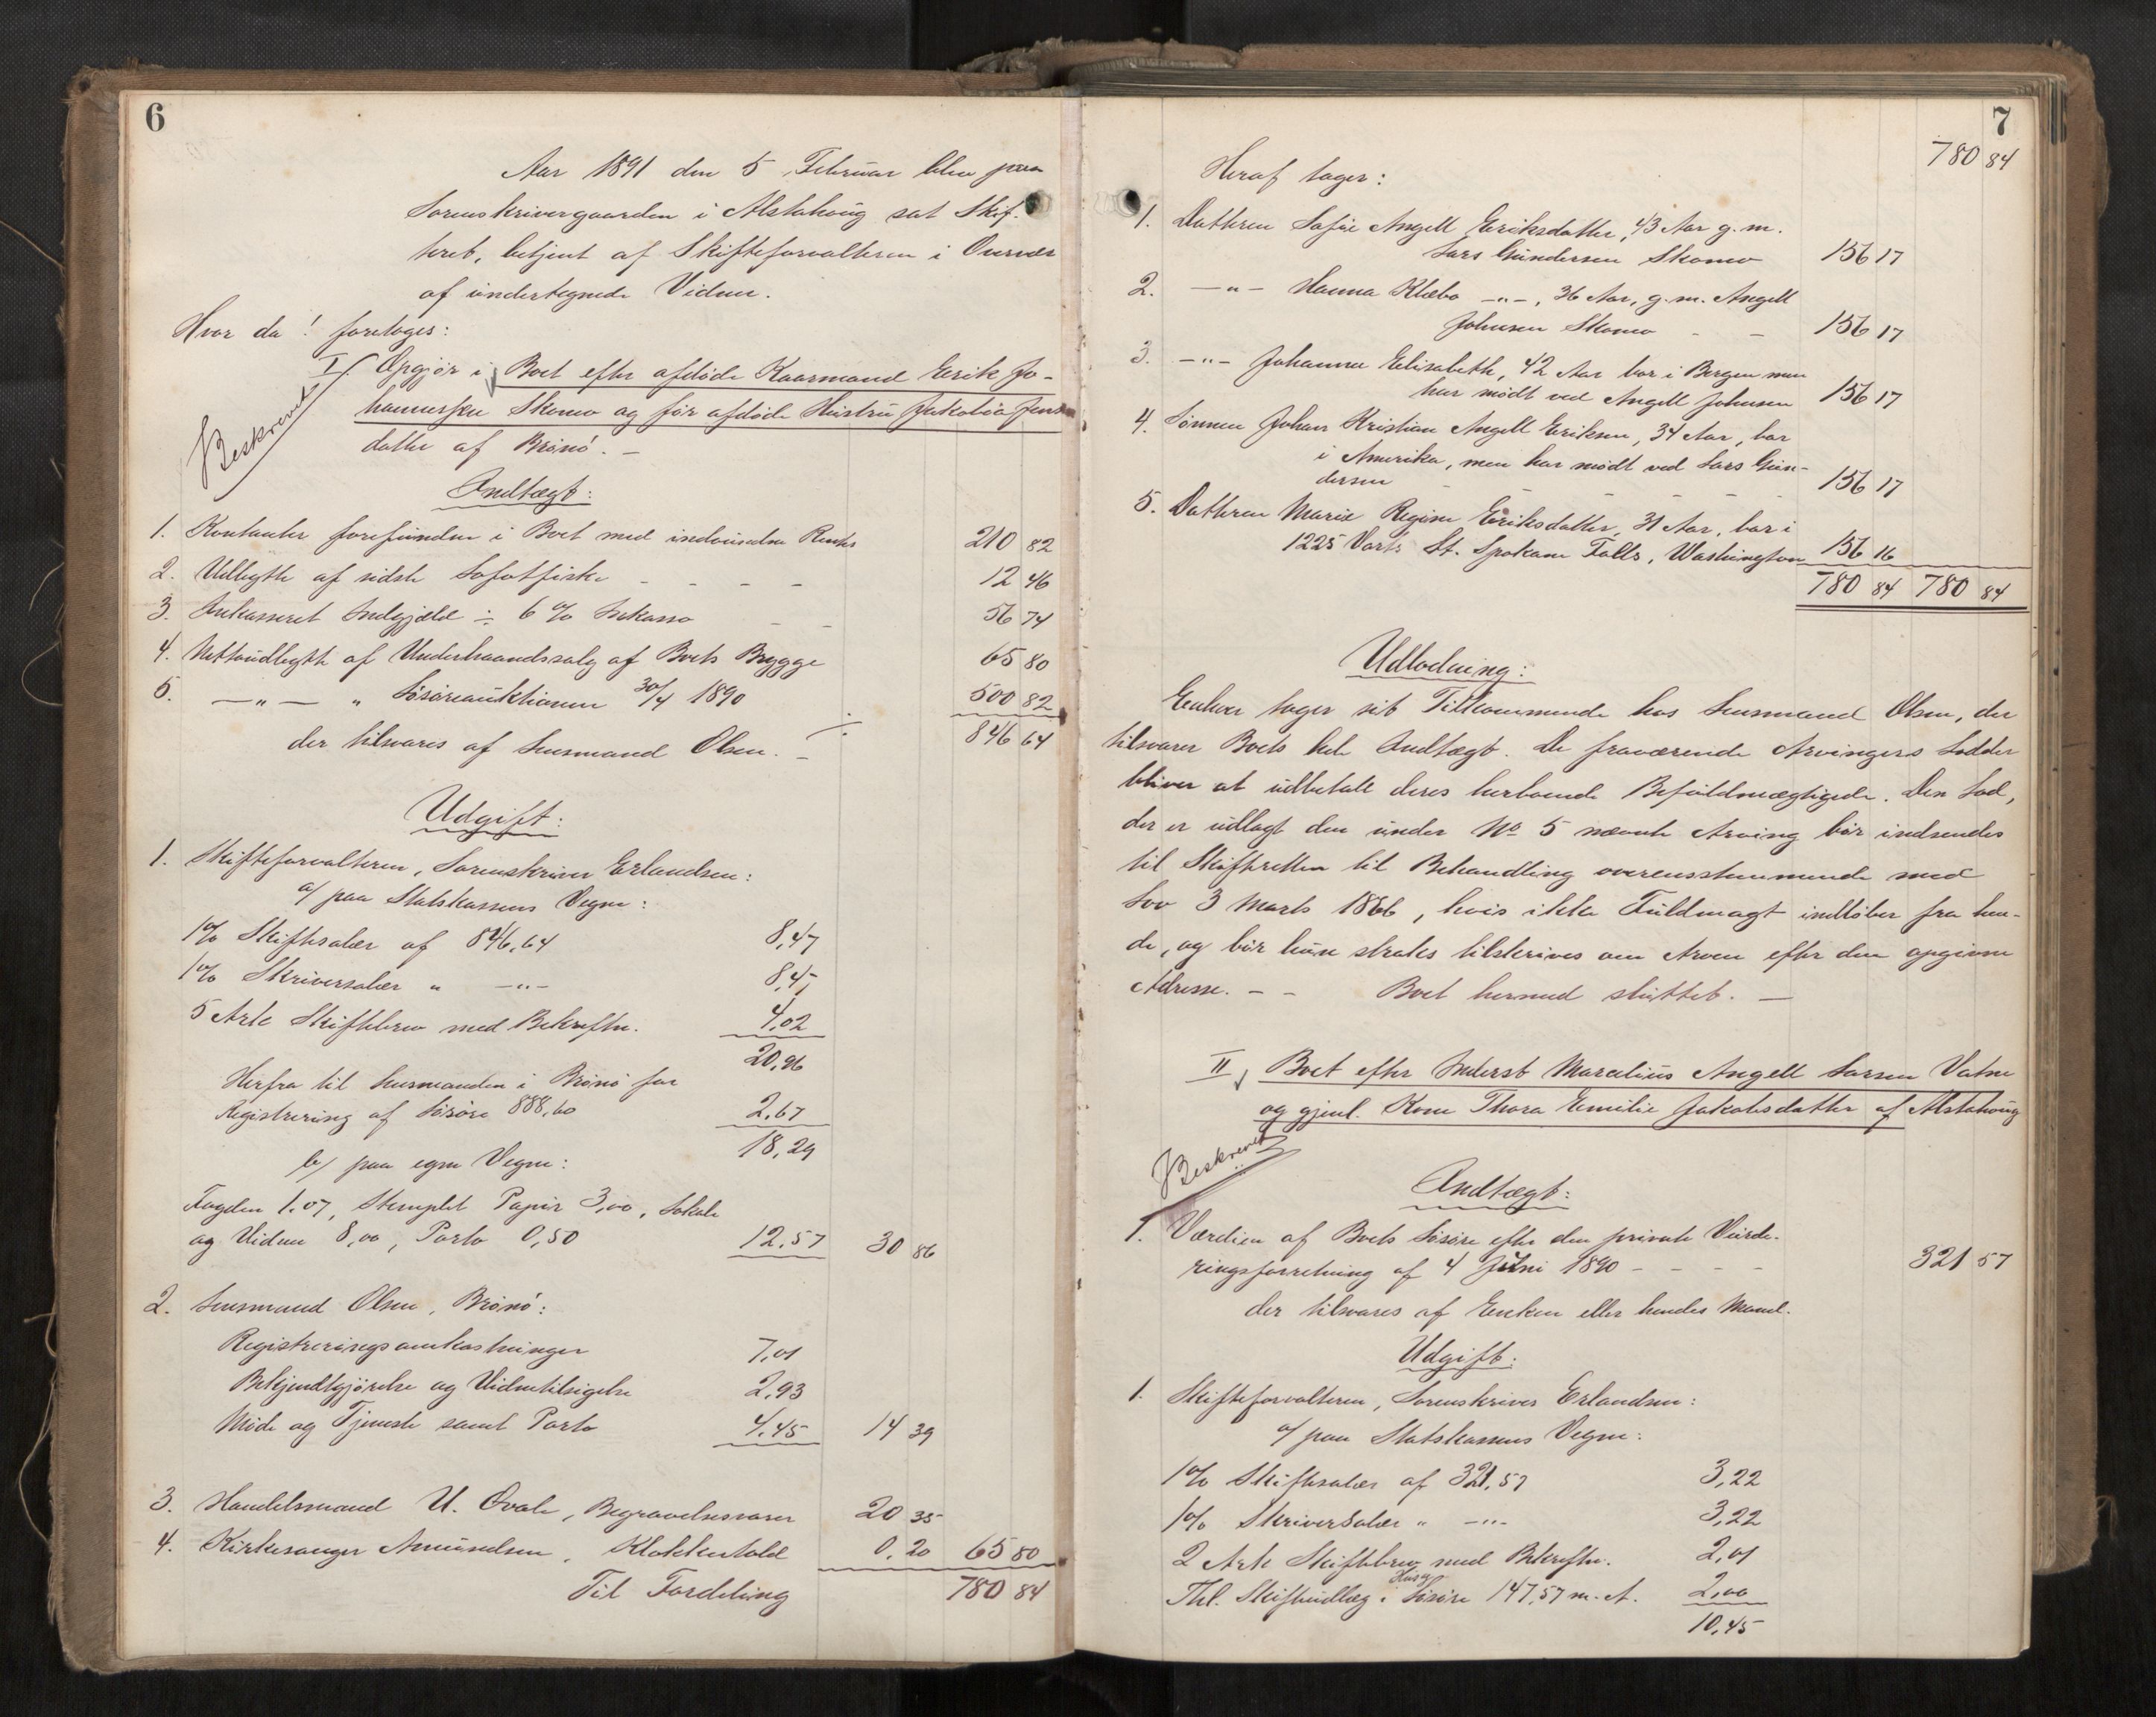 6
Aar 1891 den 5 Februar blev paa
Sorenskrivergaarden i Alstahoug sat Skif-
teret, betjent af Skifteforvalteren i Overvær
af undertegnede Vidner.
Hvor da! foretoges:
I. Opgjør i Boet efter afdøde Kaarmand Erik Jo-
hannessen Skomo og før afdøde Hustru Jakobia Jens
datter af Brønø. –
Beskrevet
Indtægt:
1. Kontanter forefunden i Boet med indvundne Renter 210 82
2. Udbytte af sidste Lofotfiske - - - - 12 46
3. Inkasseret Indgjæld ÷ 6 % Inkasso - - 56 74
4. Nettoudbytte af Underhaandssalg af Boets Brygge 65 80
5. —"— " Løsøreauktionen 30/4 1890 500 82
der tilsvares af Lensmand Olsen. – 846 64
Udgift:
1. Skifteforvalteren, Sorenskriver Erlandsen:
a/ paa Statskassens Vegne:
1% Skiftesalær af 846,64 8,47
1% Skriversalær " —"— 8,47
5 Ark Skiftebrev med Bekræftn. 4,02
20,96
Herfra til Lensmanden i Brønø for
Registrering af Løsøre 888,60 2,67
18,29
b/ paa egne Vegne:
Fogden 1.07, Stemplet Papir 3,00, Lokale
og Vidner 8,00, Porto 0,50 12,57 30 86
2. Lensmand Olsen, Brønø:
Registreringsomkostninger 7,01
Bekjendtgjørelse og Vidnetilsigelse 2,93
Møde og Tjeneste samt Porto 4,45 14 39
3. Handelsmand U. Qvale, Begravelsesvarer 20 35
4. Kirkesanger Amundsen, Klokkertold 0,20 65 80
Til Fordeling 780 84
7
780 84
Heraf tager:
1. Datteren Sofie Angell Eriksdatter, 43 Aar g. m.
Lars Gundersen Skomo 156 17
2. —"— Hanna Klæbo —"—, 36 Aar, g. m. Angell
Johnsen Skomo - - 156 17
3. —"— Johanna Elisabeth, 42 Aar bor i Bergen men
har mødt ved Angell Johnsen 156 17
4. Sønnen Johan Kristian Angell Eriksen, 34 Aar, bor
i Amerika, men har mødt ved Lars Gun-
dersen - - - - - 156 17
5. Datteren Marie Regine Eriksdatter, 31 Aar, bor i
1225 St. Spokane Falls, Washington 156 16
780 84 780 84
Udlodning:
Enhver tager sit Tilkommende hos Lensmand Olsen, der
tilsvarer Boets hele Indtægt. De fraværende Arvingers Lodder
bliver at udbetale deres herboende Befuldmægtigede. Den Lod,
der er udlagt den under No 5 nævnte Arving bør indsendes
til Skifteretten til Behandling overensstemmende med
Lov 3 Marts 1866, hvis ikke Fuldmagt indløber fra hen-
de, og bør hun straks tilskrives om Arven efter den opgivne
Adresse. – – Boet hermed sluttet. –
II, Boet efter Inderst Marcelius Angell Larsen Vatne
og gjenl. Kone Thora Emilie Jakobsdatter af Alstahoug
Beskrevet
Indtægt:
1. Værdien af Boets Løsøre efter den private Vurde-
ringsforretning af 4 Juni 1890 - - - - 321 57
der tilsvares af Enken eller hendes Mand.
Udgift:
1. Skifteforvalteren, Sorenskriver Erlandsen:
a/ paa Statskassens Vegne:
1% Skiftesalær af 321,57 3,22
1% Skriversalær " —"— 3,22
2 Ark Skiftebrev med Bekræftn. 2,01
Thl. Skifteudlæg i Hus og Løsøre 147,57 m. A. 2,00
10,45